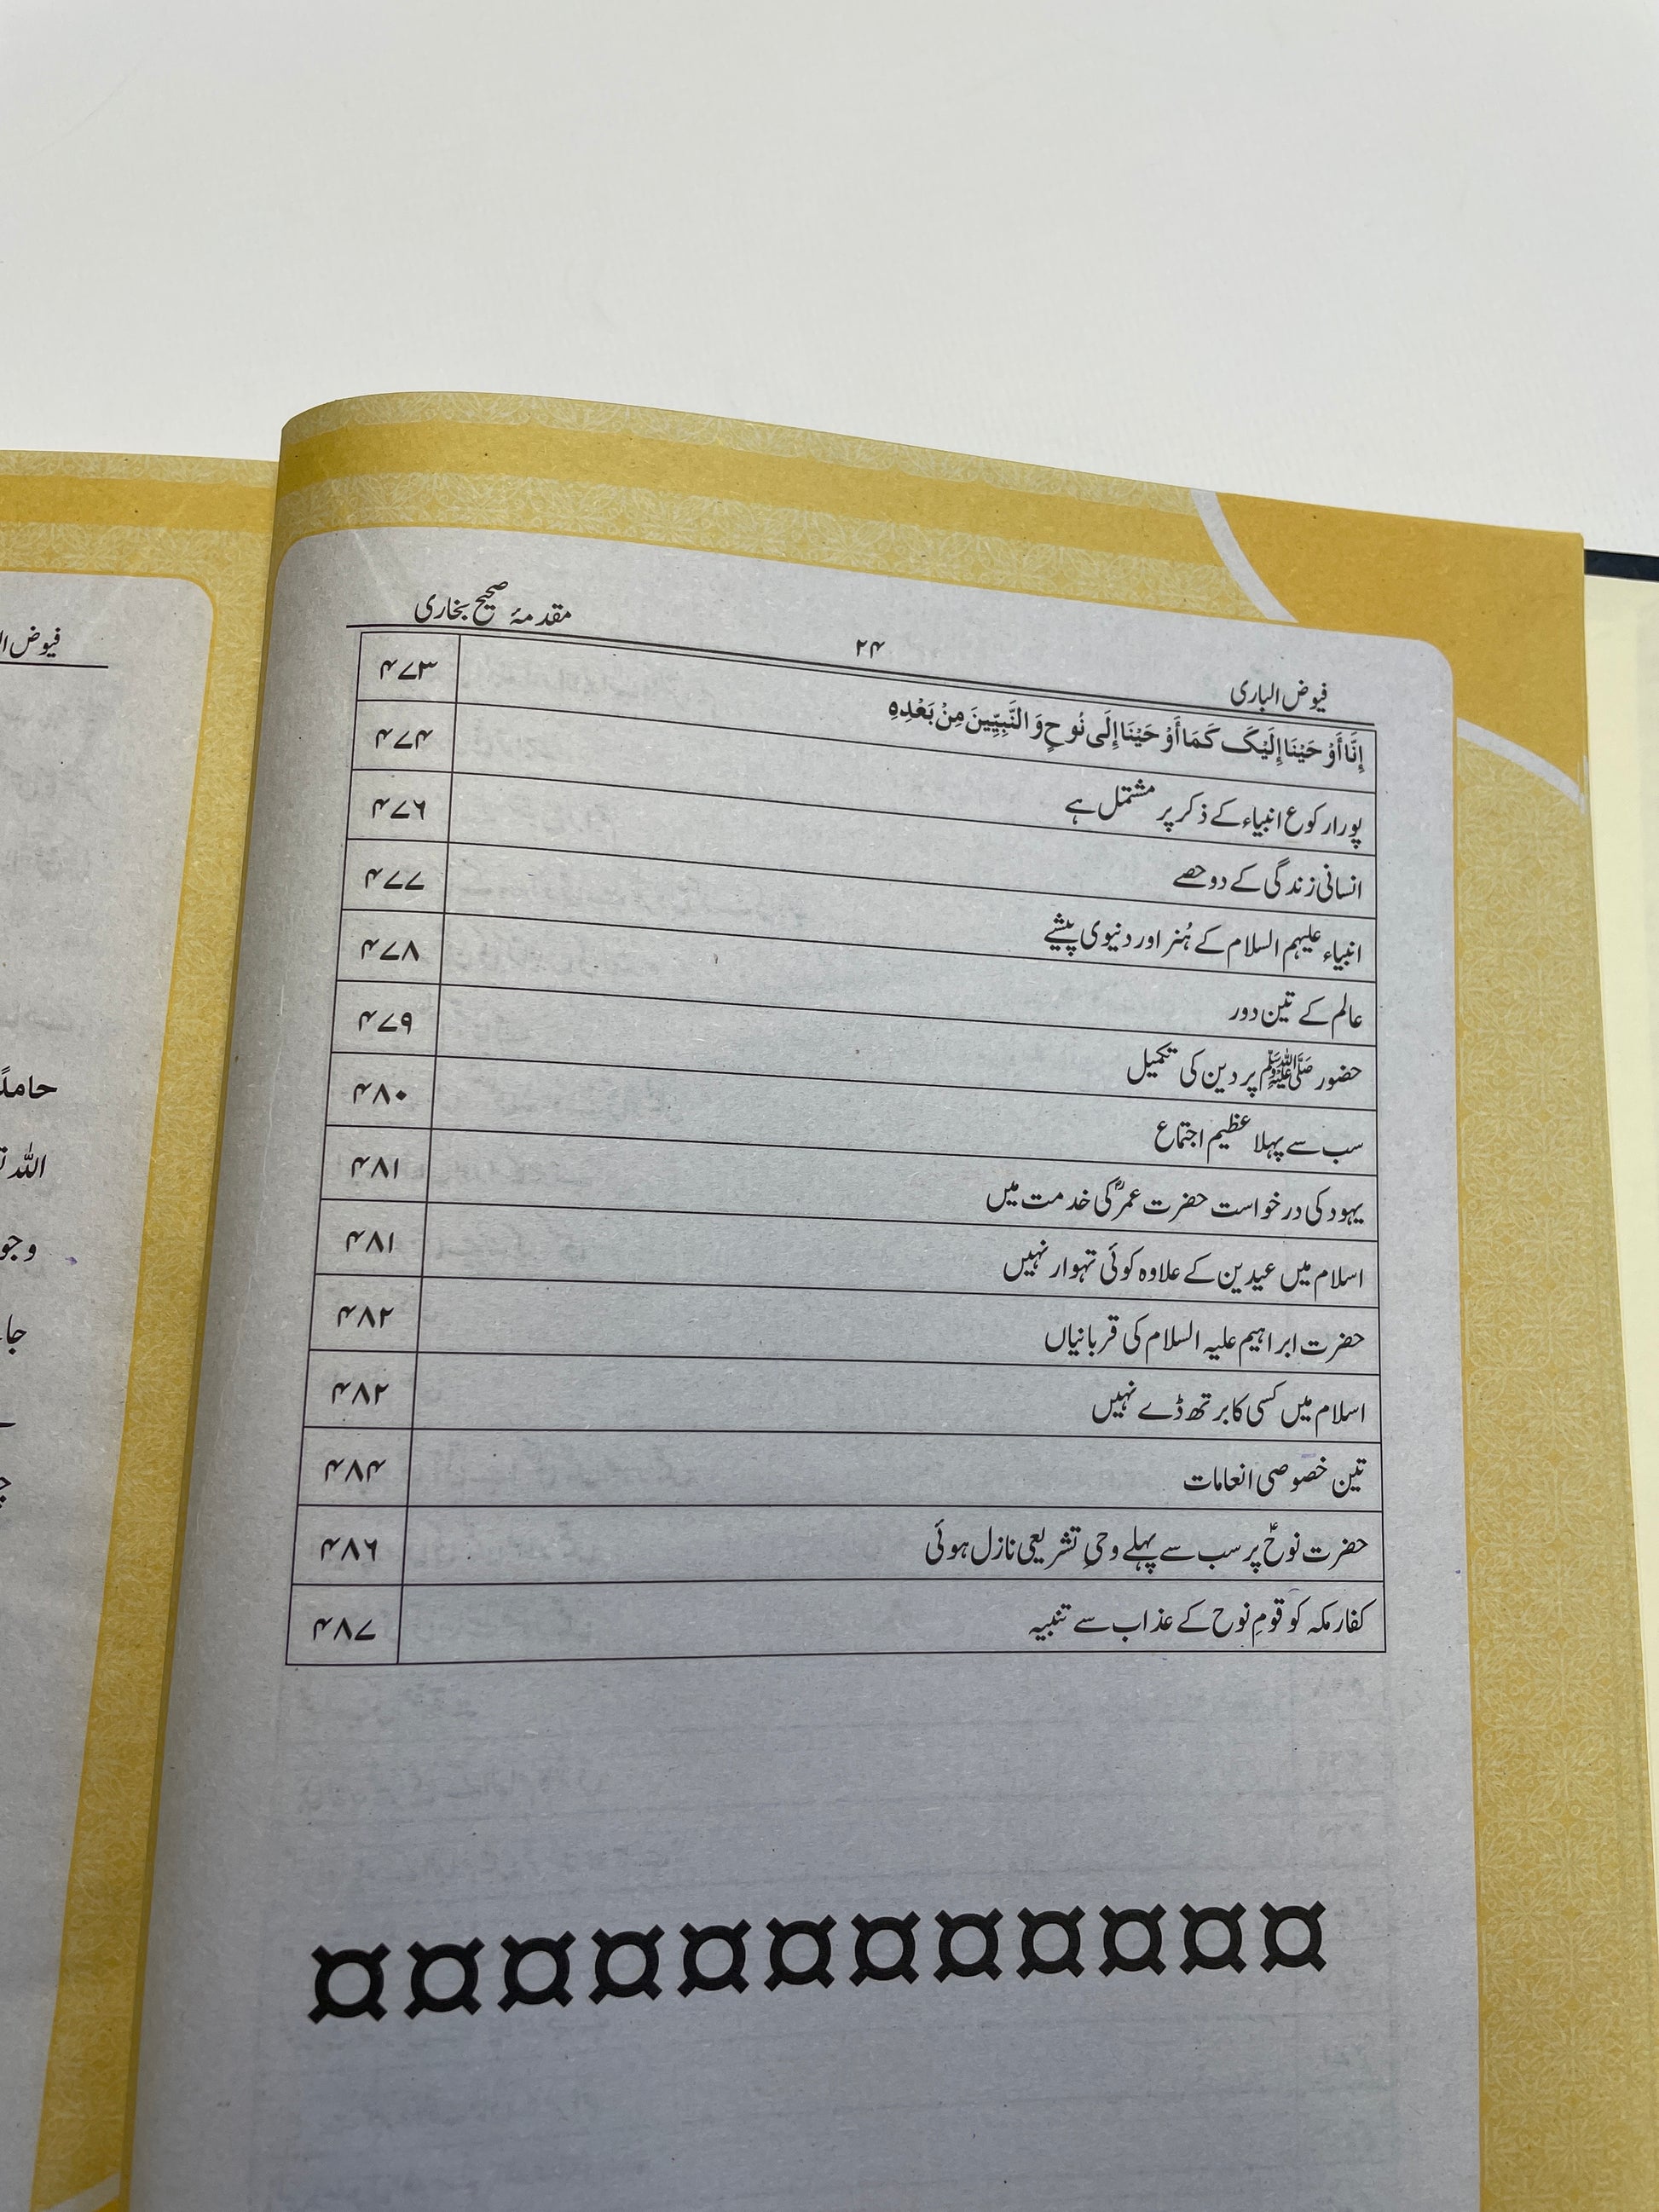 فیوض الباری ۲۴ مقدمۂ صحیح بخاری
إِنَّا أَوْحَيْنَا إِلَيْكَ كَمَا أَوْحَيْنَا إِلَى نُوحٍ وَ النَّبِيِّينَ مِنْ بَعْدِهِ ۴۷۳
پورا رکوع انبیاء کے ذکر پر مشتمل ہے ۴۷۴
انسانی زندگی کے دو حصے ۴۷۶
انبیاء علیہم السلام کے ہُنر اور دنیوی پیشے ۴۷۷
عالم کے تین دور ۴۷۸
حضور ﷺ پر دین کی تکمیل ۴۷۹
سب سے پہلا عظیم اجتماع ۴۸۰
یہود کی درخواست حضرت عمرؓ کی خدمت میں ۴۸۱
اسلام میں عیدین کے علاوہ کوئی تہوار نہیں ۴۸۱
حضرت ابراہیم علیہ السلام کی قربانیاں ۴۸۲
اسلام میں کسی کا برتھ ڈے نہیں ۴۸۲
تین خصوصی انعامات ۴۸۴
حضرت نوحؑ پر سب سے پہلے وحیِ تشریعی نازل ہوئی ۴۸۶
کفار مکہ کو قومِ نوح کے عذاب سے تنبیہ ۴۸۷
¤¤¤¤¤¤¤¤¤¤¤¤
فیوض
حامداً
اللہ